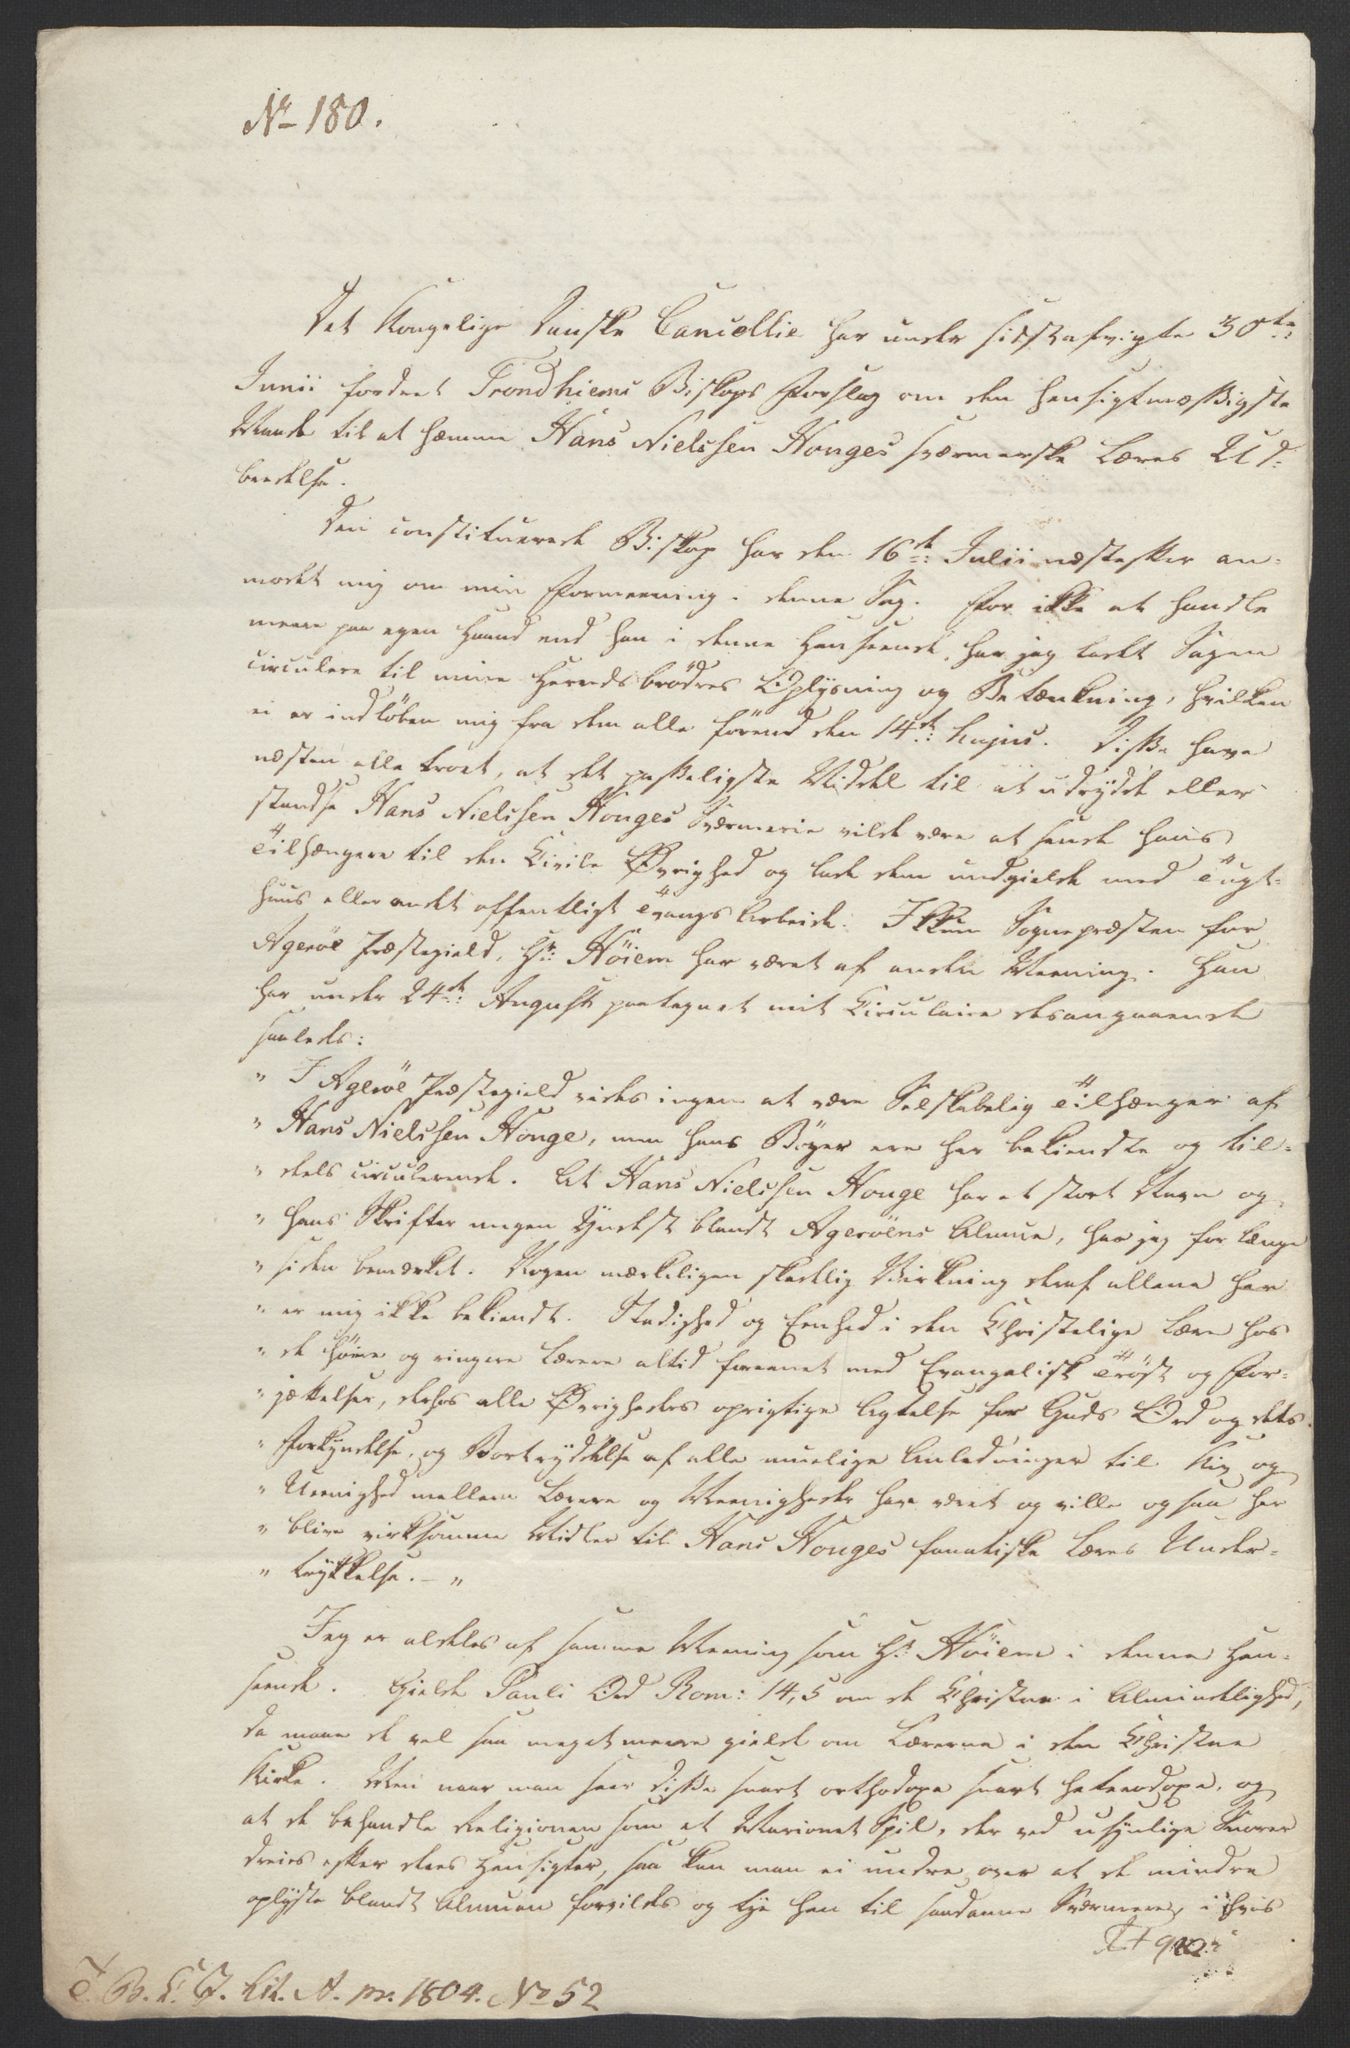 No 180.
Det Kongelige Danske Cancellie har under sidstafvigte 30te
Junii fordret Trondhiems Biskops Forslag om den hensigtmæssigste
Maade til at hæmme Hans Nielssen Houges sværmerske Læres Ud-
bredelse.
Den constituerede Biskop har den 16de Julii næstefter an-
modet mig om min Formeening i denne Sag. For ikke at handle
meere paa egen Haand end han i denne Henseende, har jeg ladet Sagen
circulere til mine Herredsbrödres Oplysning og Betænkning, hvilken
ei er indlöben mig fra dem alle förend den 14de hujus. Disse have
næsten alle troet, at det passeligste Middel til at udrydde eller
standse Hans Nielssen Houges Sværmerie vilde være at sende hans
Tilhængere til den Civile Øvrighed og lade dem undgielde med Tugt-
huus eller andet offentligt Tvangs Arbeide. Ikkun Sognepræsten for
Agerøe Præstegield, Hr: Höiem har været af anden Meening. Han
har under 24de August paategnet mit Circulaire desangaaende
saaledes:
" I Agerøe Præstegield vides ingen at være Selskabelig Tilhænger af
" Hans Nielssen Houge, men hans Böger ere her bekiendte og til-
" deels circulerende. At Hans Nielssen Houge har et stort Navn og
" hans Skrifter megen Yndest blandt Agerøens Almue, har jeg for længe
" siden bemærket. Nogen mærkeligen skadelig Virkning deraf allene her
" er mig ikke bekiendt. Stadighed og Eenhed i den Christelige Lære hos
" de höiere og ringere Lærere altid foreenet med Evangelisk Tröst og For-
" jættelser, derhos alle Øvrigheders oprigtige Agtelse for Guds Ord og dets
" Forkyndelse, og Bortryddelse af alle muelige Anledninger til Kiv og
" Ueenighed mellem Lærere og Meenigheder have været og ville og saa her
" blive virksomme Midler til Hans Houges fanatiske Læres Under-
" trykkelse. — "
Jeg er aldeles af samme Meening som Hr. Höiem i denne Hen-
seende. Gielde Pauli Ord Rom: 14,5 om de Christne i Almindelighed,
da maae de vel saa meget meere gielde om Lærerne i den Christne
Kirke. Men naar man seer disse snart orthodoxe snart heterodoxe, og
at de behandle Religionen som et Marionet Spil, der ved usynlige Snorer
dreies efter deres Hensigter, saa kan man ei undre over at de mindre
oplyste blandt Almuen forvildes og tye hen til saadanne Sværmere, i hvis
T. B. C. G. Lit. A. pr. 1804. No 52